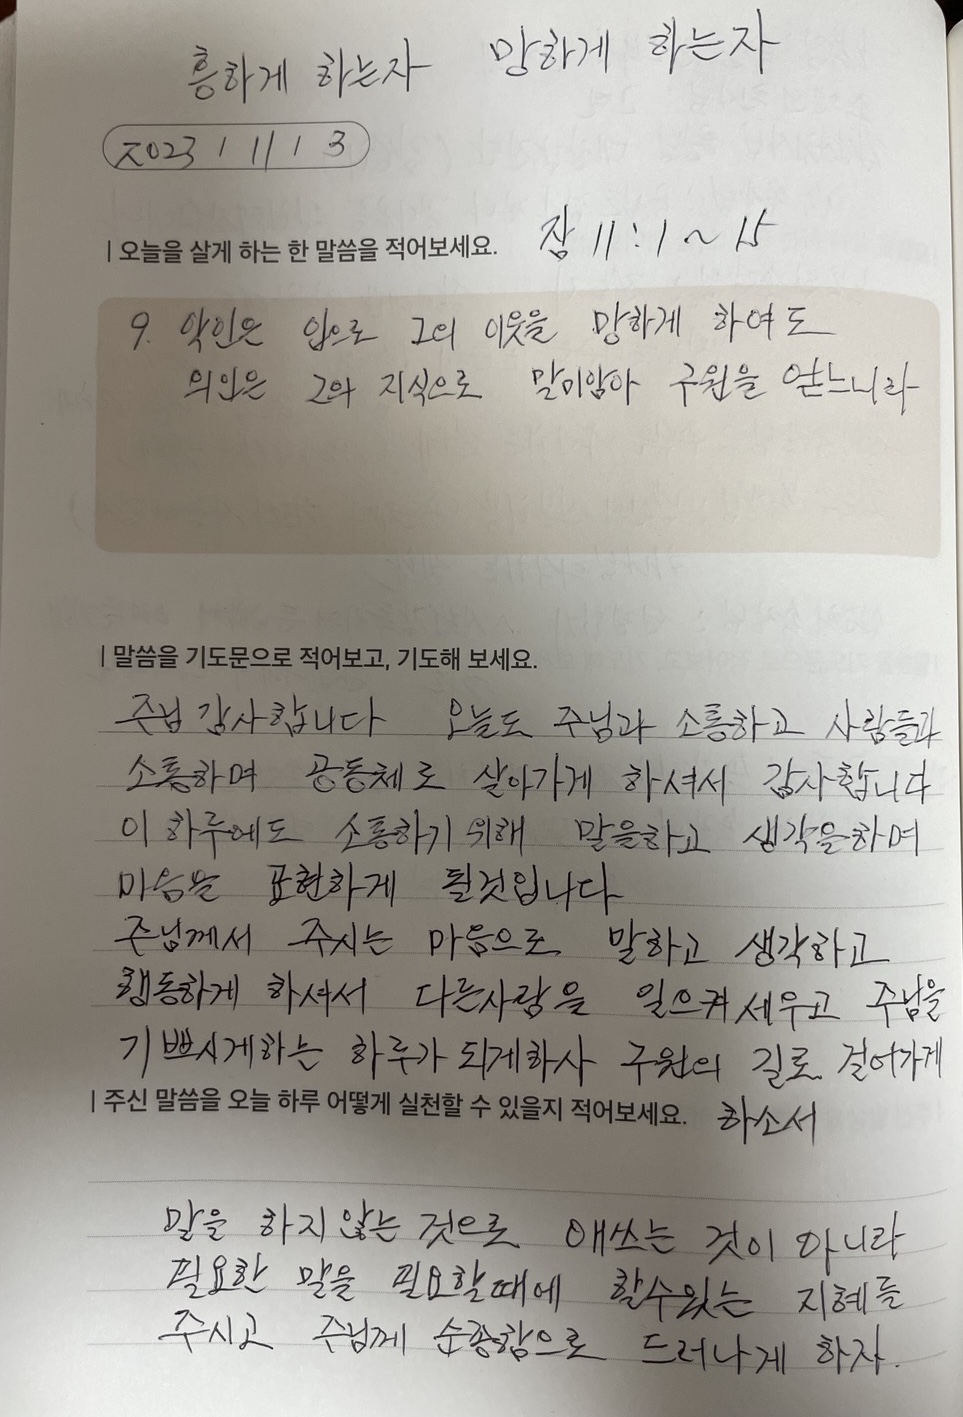 흥하게 하는자 망하게 하는자
2023 / 11 / 3
| 오늘을 살게 하는 한 말씀을 적어보세요. 잠 11:1 ~ 15
9. 악인은 입으로 그의 이웃을 망하게 하여도
의인은 그의 지식으로 말미암아 구원을 얻느니라
| 말씀을 기도문으로 적어보고, 기도해 보세요.
주님 감사합니다 오늘도 주님과 소통하고 사람들과
소통하며 공동체로 살아가게 하셔서 감사합니다
이 하루에도 소통하기 위해 말을하고 생각을하며
마음을 표현하게 될것입니다
주님께서 주시는 마음으로 말하고 생각하고
행동하게 하셔서 다른사람을 일으켜세우고 주님을
기쁘시게하는 하루가 되게하사 구원의 길로 걸어가게
하소서
| 주신 말씀을 오늘 하루 어떻게 실천할 수 있을지 적어보세요.
말을 하지 않는 것으로 애쓰는 것이 아니라
필요한 말을 필요할때에 할수있는 지혜를
주시고 주님께 순종함으로 드러나게 하자.